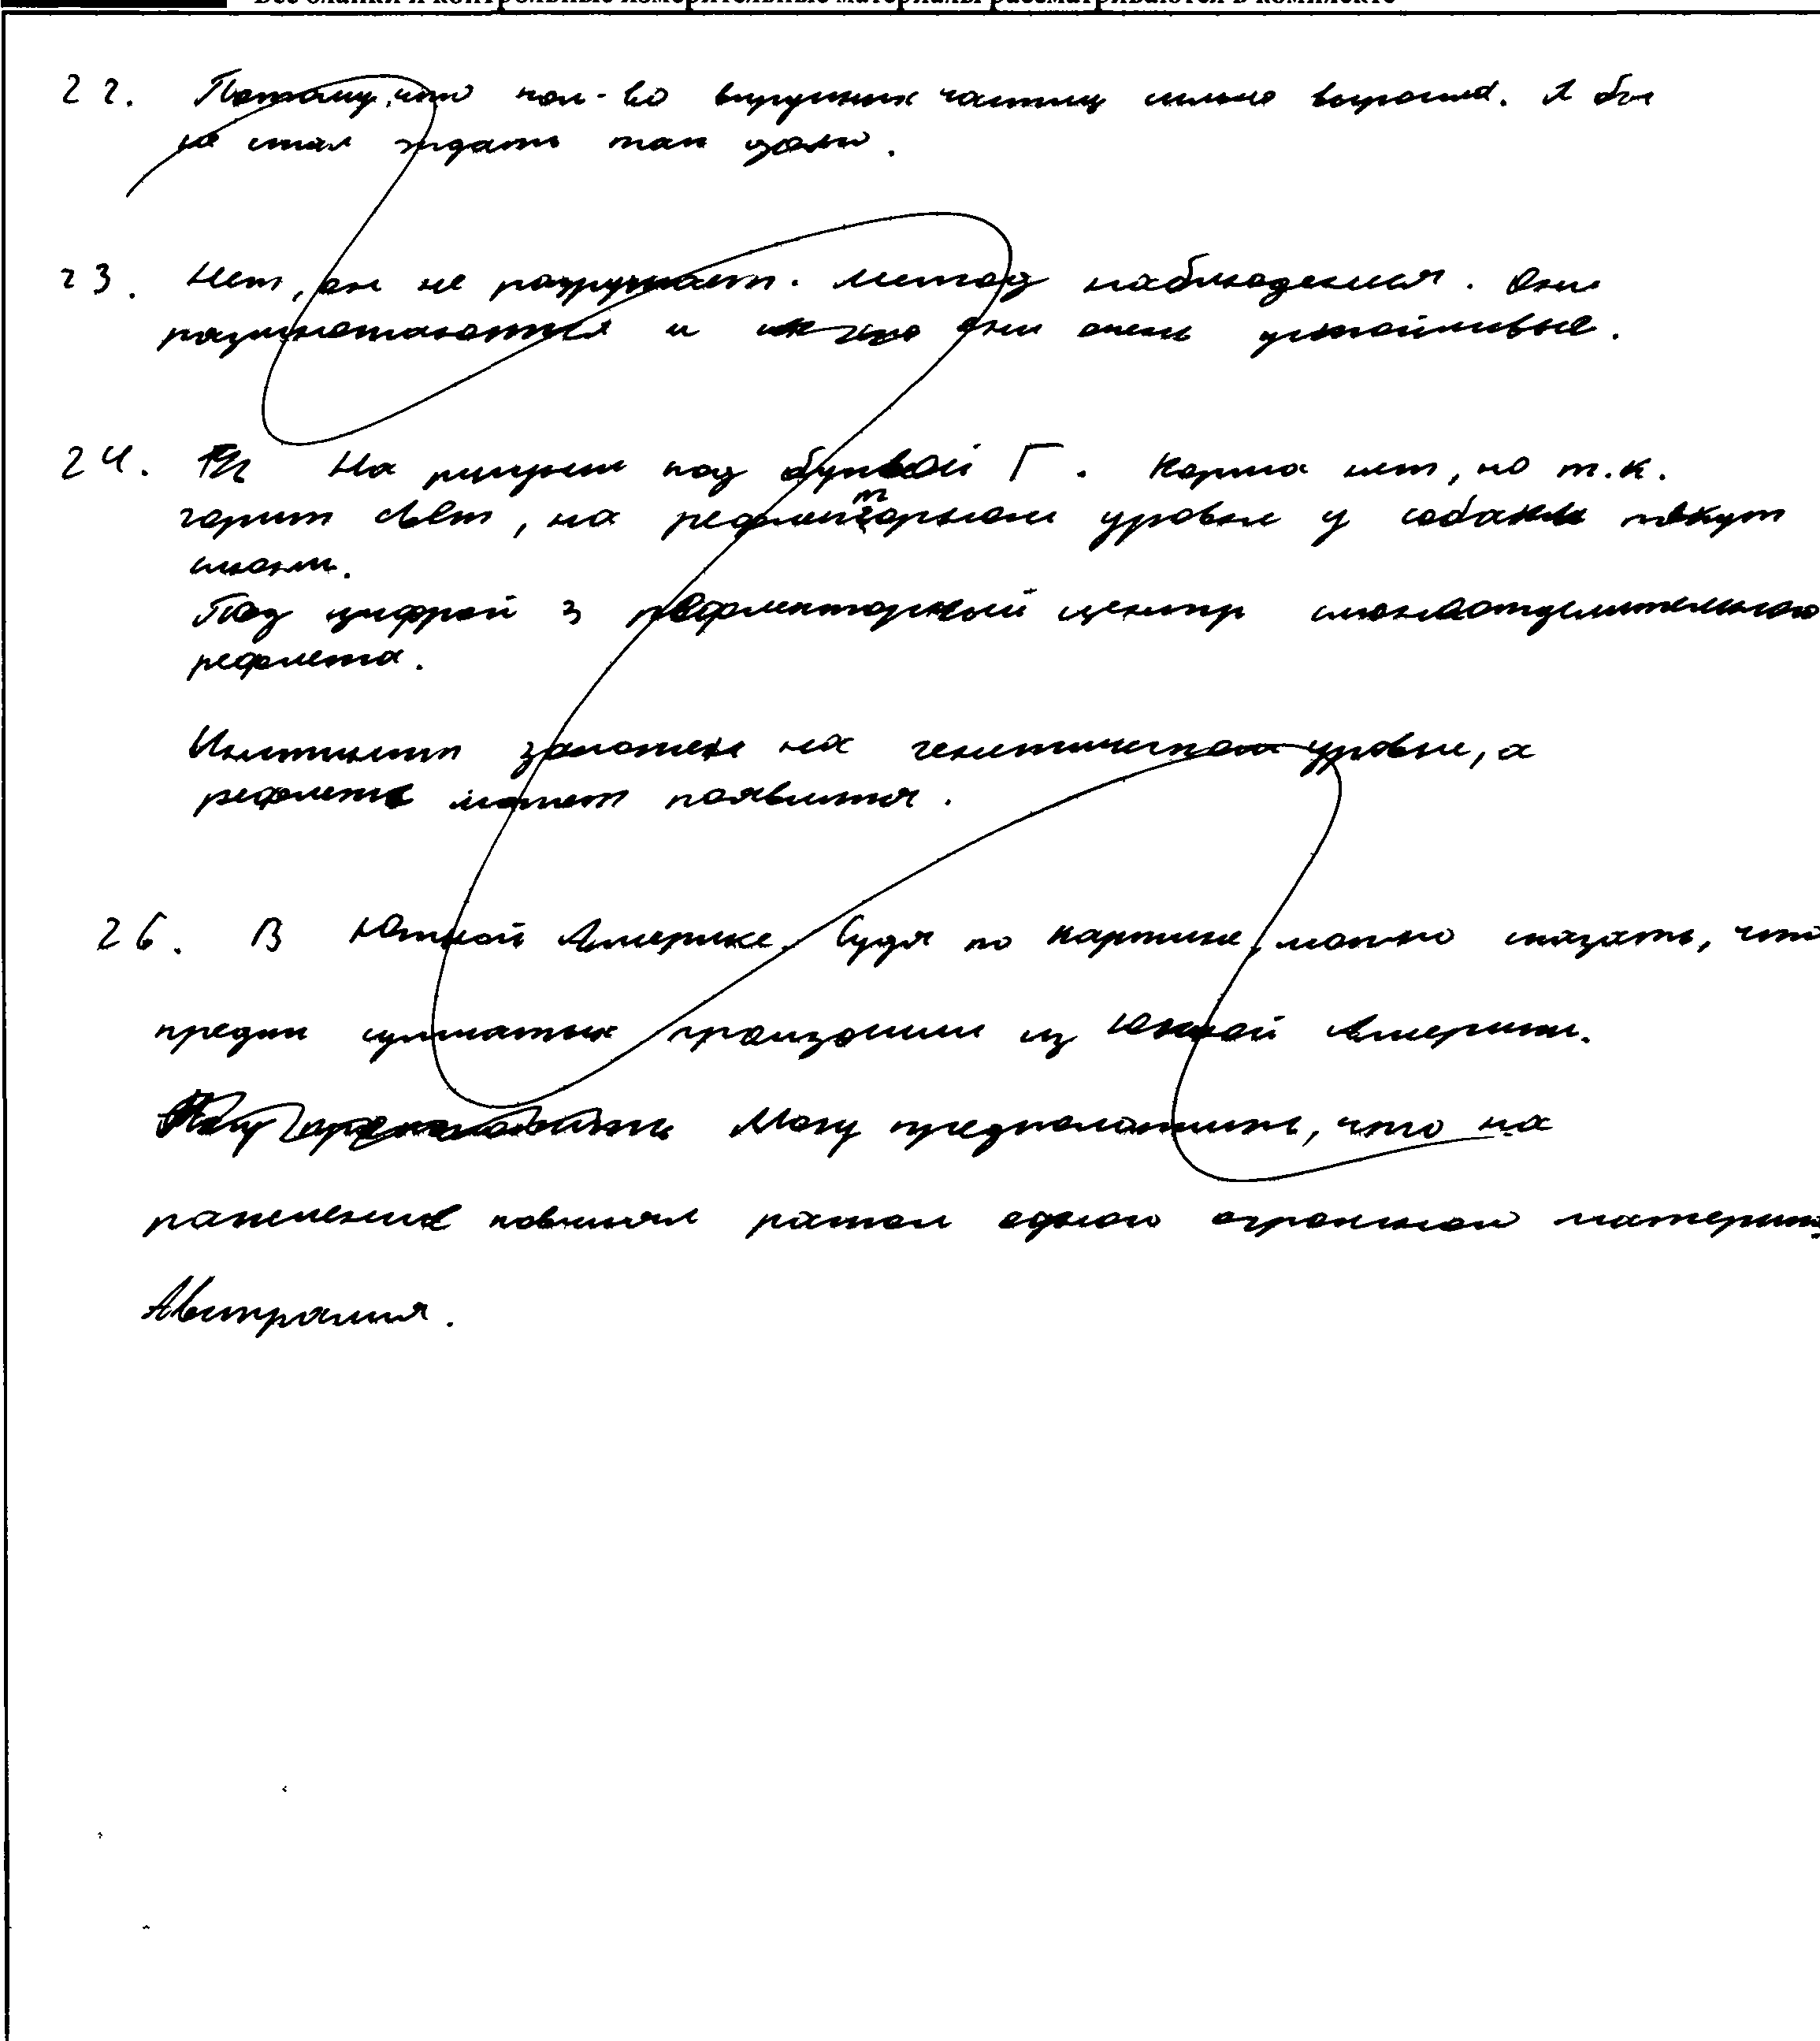 Все бланки и контрольные измерительные материалы рассматриваются в комплекте
22. Потому, что кол-во вирусных частиц сильно выросло. Я бы
не стал ждать так долго.
23. Нет, он не разрушает. Метод наблюдения. Они
размножаются и они очень устойчивые.
24. На рисунке под буквой Г. Корма нет, но т.к.
горит свет, на рефлекторном уровне у собаки текут
слюни.
Под цифрой 3 рефлекторный центр слюноотделительного
рефлекса.
Инстинкт заложен на генетическом уровне, а
рефлекс может появиться.
26. В Южной Америке. Судя по картине, можно сказать, что
предки сумчатых произошли из Южной Америки.
Могу предположить, что на
расселение повлиял раскол одного огромного материка
Австралия.